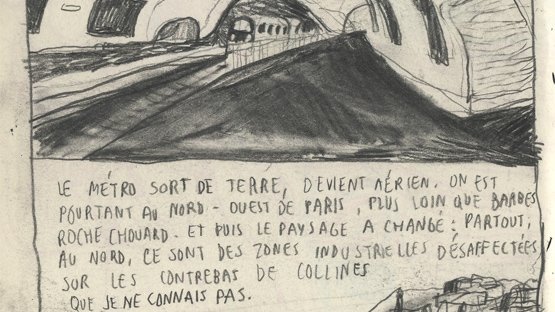 LE MÉTRO SORT DE TERRE, DEVIENT AÉRIEN. ON EST
POURTANT AU NORD-OUEST DE PARIS, PLUS LOIN QUE BARBES
ROCHECHOUARD. ET PUIS LE PAYSAGE A CHANGÉ; PARTOUT,
AU NORD, CE SONT DES ZONES INDUSTRIELLES DÉSAFFECTÉES
SUR LES CONTREBAS DE COLLINES
QUE JE NE CONNAIS PAS.